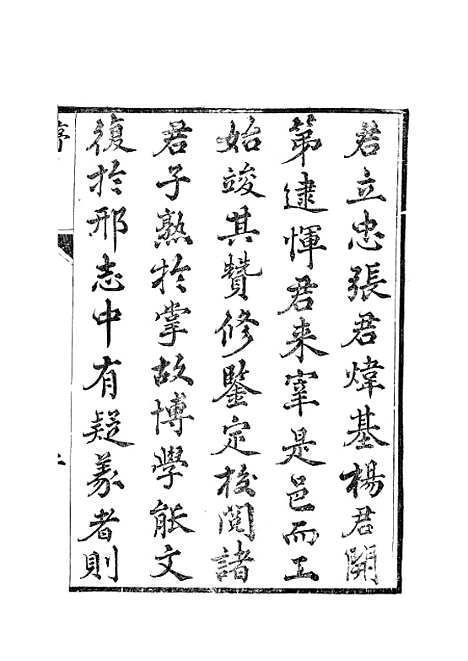 君立忠張君煒基楊君開
第逮惲君来宰是邑而工
始竣其贊修鑒定校閱諸
君子熟於掌故博學能文
復於邢志中有疑義者則
序